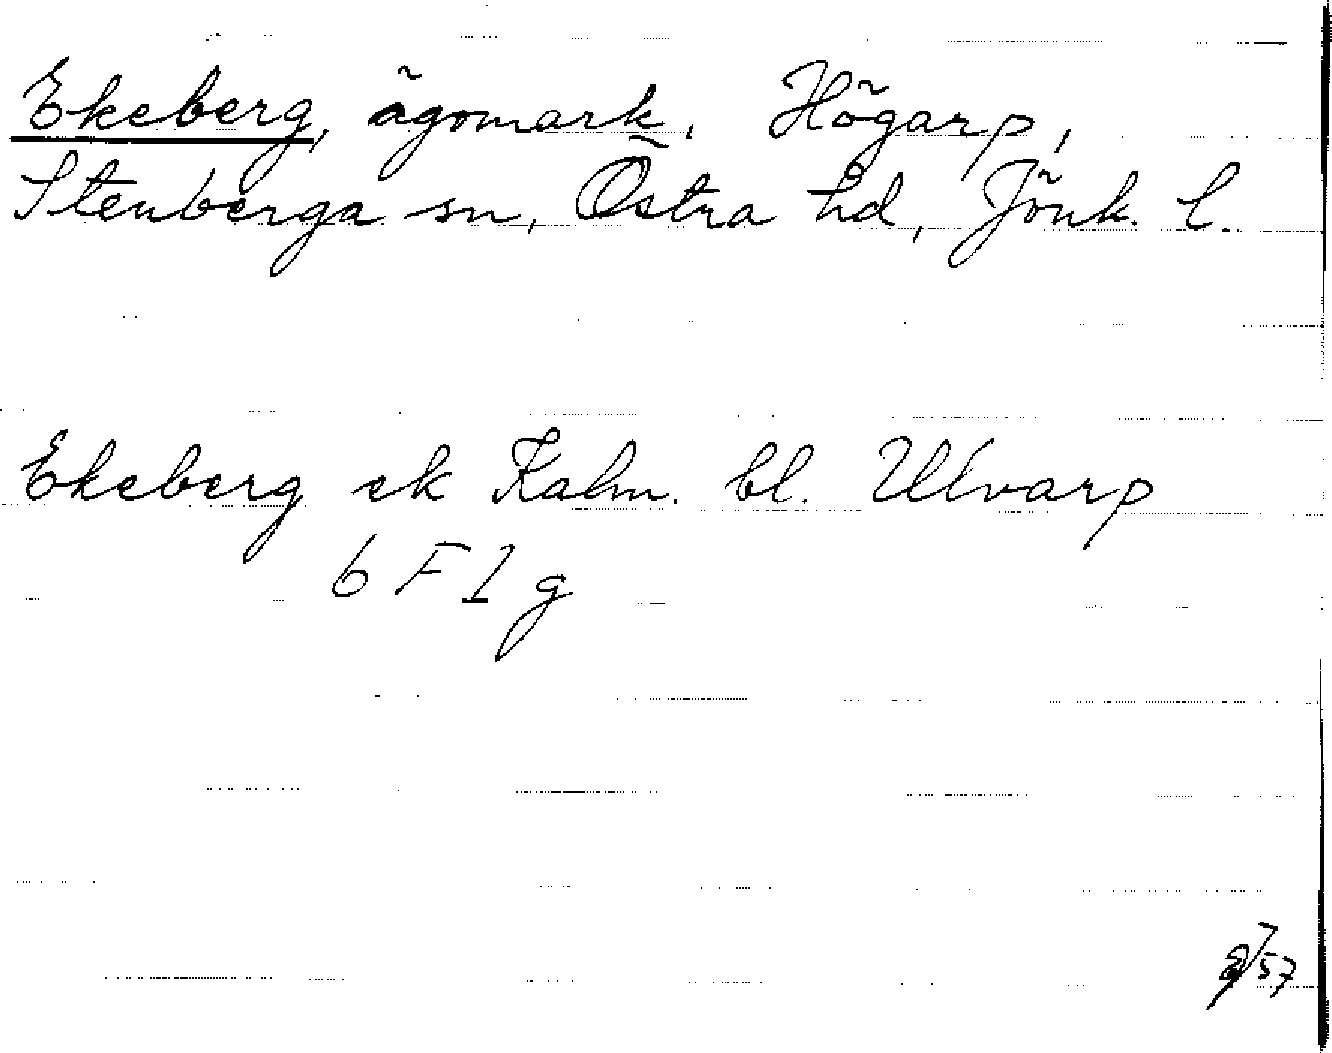 Ekeberg, ägomark. Högarp,
Stenberga sn, Östra hd, Jönk. l.
Ekeberg ek Kalm. bl. Ulvarp
6 F 1 g